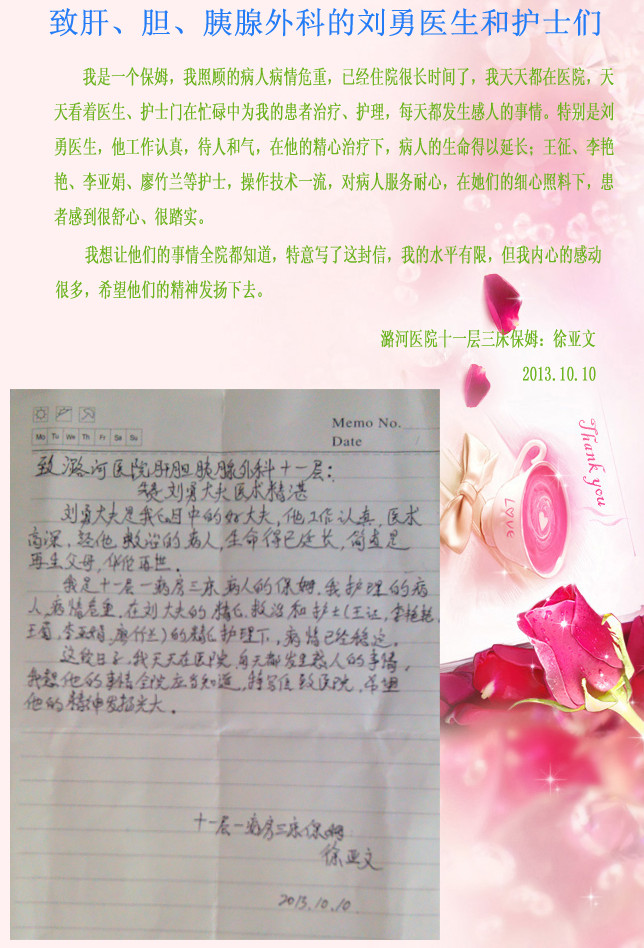 致肝、胆、胰腺外科的刘勇医生和护士们
我是一个保姆，我照顾的病人病情危重，已经住院很长时间了，我天天都在医院，天
天看着医生、护士门在忙碌中为我的患者治疗、护理，每天都发生感人的事情。特别是刘
勇医生，他工作认真，待人和气，在他的精心治疗下，病人的生命得以延长；王征、李艳
艳、李亚娟、廖竹兰等护士，操作技术一流，对病人服务耐心，在她们的细心照料下，患
者感到很舒心、很踏实。
我想让他们的事情全院都知道，特意写了这封信，我的水平有限，但我内心的感动
很多，希望他们的精神发扬下去。
潞河医院十一层三床保姆：徐亚文
2013.10.10
Memo No.
Date
Mo Tu We Th Fr Sa Su
致潞河医院肝胆胰腺外科十一层：
刘勇大夫医术精湛
刘勇大夫是我心目中的好大夫，他工作认真，医术
高深，经他救治的病人，生命得已延长，简直是
再生父母，华佗再世。
我是十一层一病房三床病人的保姆，我护理的病
人，病情危重，在刘大夫的精心救治和护士（王征，李艳艳，
王菊，李亚娟，廖竹兰）的精心护理下，病情已经稳定。
这段日子，我天天在医院，每天都发生感人的事情。
我想他的事情全院应当知道，特写信致医院，希望
他的精神发扬光大。
十一层一病房三床保姆
徐亚文
2013.10.10
Thank you
LOVE